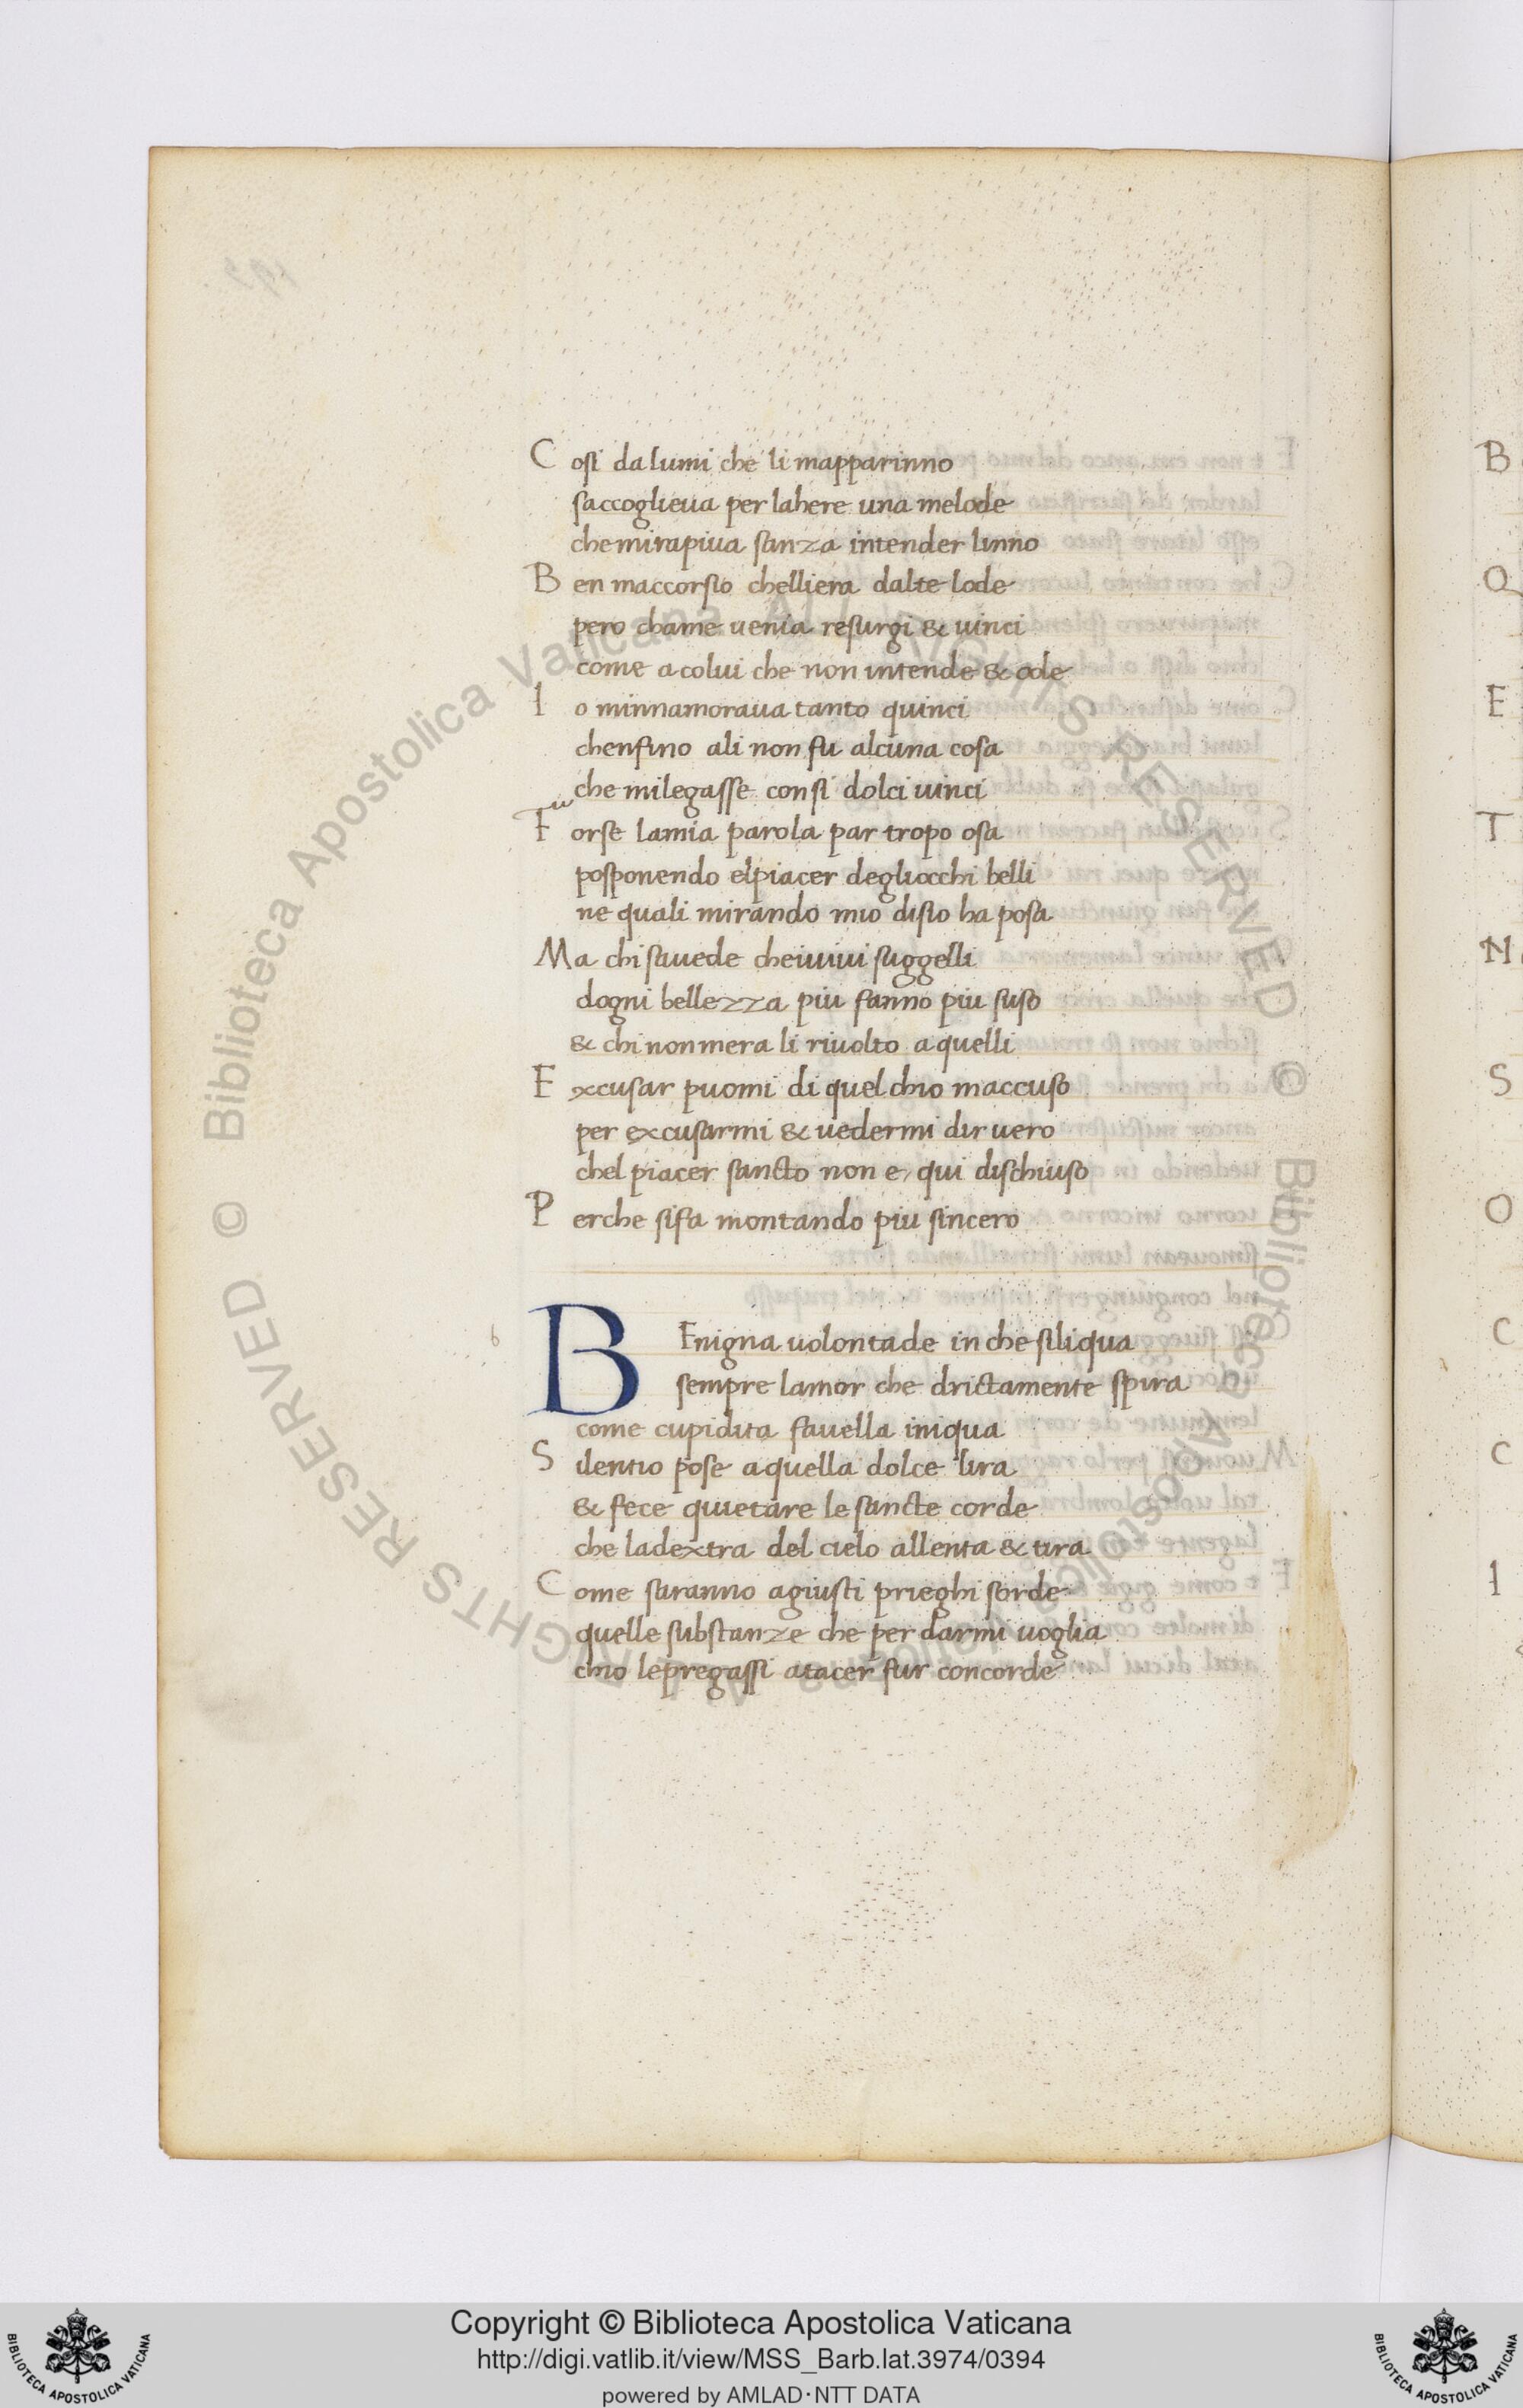 Cosi da lumi che li mapparinno
saccoglieua per lahere una melode
chemirapiua sanza intender linno
Ben maccorsio chelliera dalte lode
pero chame uenia resurgi & uinci
come acolui che non intende & ode
Io minnamoraua tanto quinci
chenfino ali non fu alcuna cosa
che milegasse consi dolci uinci
Forse lamia parola par tropo osa
posponendo elpiacer degliocchi belli
ne quali mirando mio disio ha posa
Ma chi sauede cheiuiui suggelli
dogni bellezza piu fanno piu suso
& chi nonmera li riuolto aquelli
Excusar puomi di quel chio maccuso
per excusarmi & uedermi dir uero
chel piacer sancto non e, qui dischiuso
Perche sifa montando piu sincero
BEnigna uolontade in che siliqua
sempre lamor che drictamente spira
come cupidita fauella iniqua
Silentio pose aquella dolce lira
& fece quietare le sancte corde
che ladextra del cielo allenta & tira
Come saranno agiusti prieghi sorde
quelle substanze che per darmi uoglia
chio lepregassi atacer fur concorde
B
Q
E
T
M
S
O
C
C
I
© Biblioteca Apostolica Vaticana ALL RIGHTS RESERVED
© Biblioteca Apostolica Vaticana ALL RIGHTS RESERVED
Copyright © Biblioteca Apostolica Vaticana
http://digi.vatlib.it/view/MSS_Barb.lat.3974/0394
powered by AMLAD·NTT DATA
BIBLIOTECA APOSTOLICA VATICANA
BIBLIOTECA APOSTOLICA VATICANA